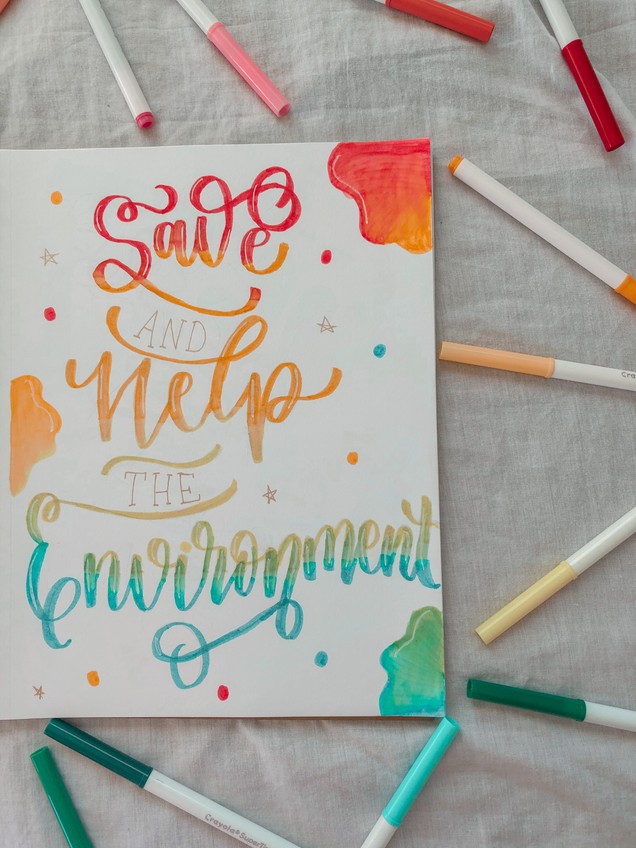 Save
AND
Help
THE
Environment
Cra
Crayola SuperTi